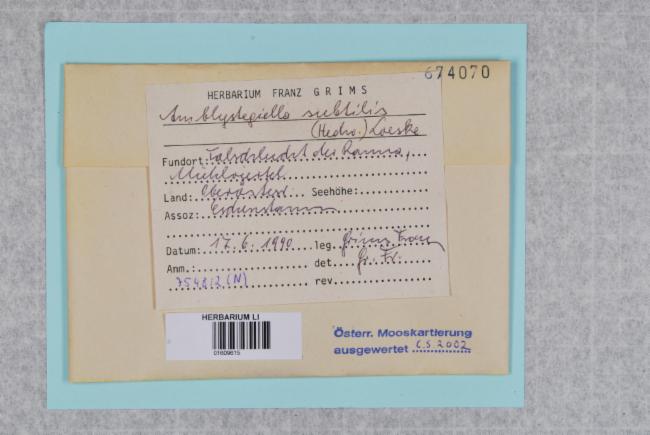 674070
HERBARIUM FRANZ GRIMS
Amblystegiella subtilis
(Hedw.) Loeske
Fundort: der Ranna,
Mühlviertel
Land: Oberösterr. Seehöhe:
Assoz: Eschenstamm
Datum: 17.6.1990 leg. Grims Franz
Anm.: det. Gr. Fr.
7548/2 (N) rev.
HERBARIUM LI
01609615
Österr. Mooskartierung
ausgewertet 6.5.2002